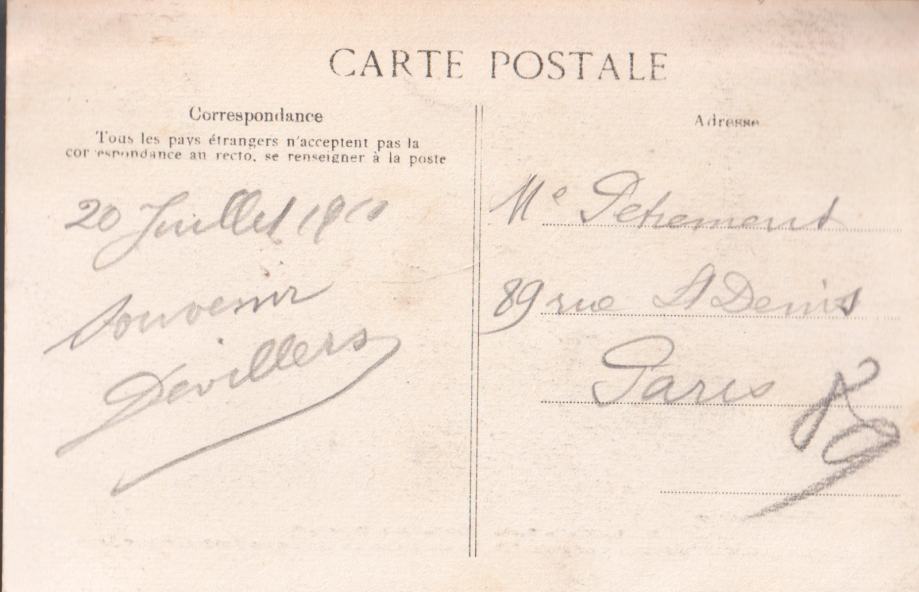 CARTE POSTALE
Correspondance
Tous les pays étrangers n'acceptent pas la
correspondance au recto, se renseigner à la poste
20 Juillet 1910
Souvenir
Devillers
Adresse
Me Petrement
89 rue St Denis
Paris
89